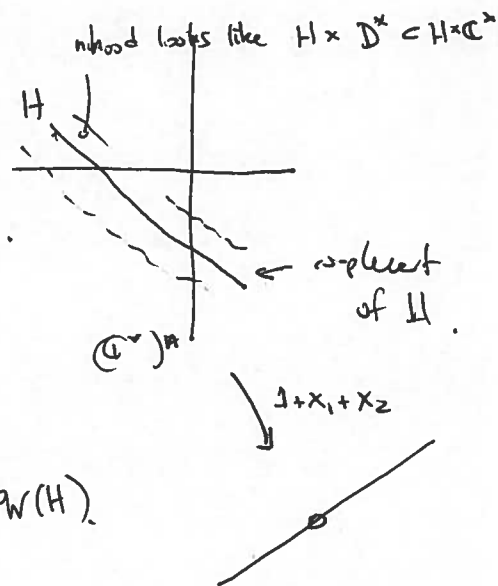 nhood looks like H × D^* ⊂ H×ℂ^*
H
← complement
of H.
1+x₁+x₂
W(H).